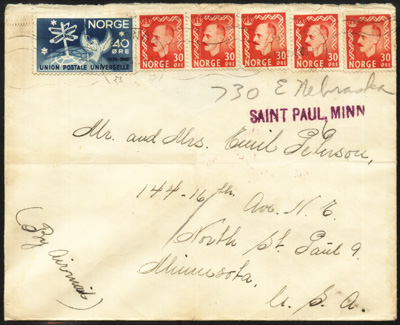 NORGE
40
ØRE
UNION POSTALE UNIVERSELLE
NORGE NORGE NORGE NORGE NORGE
30 ØRE 30 ØRE 30 ØRE 30 ØRE 30 ØRE
730 E Nebraska
SAINT PAUL, MINN
Mr. and Mrs. Emil Peterson,
144-16th Ave. N.E.
North St. Paul 9.
Minnesota.
U. S. A.
(By Airmail)